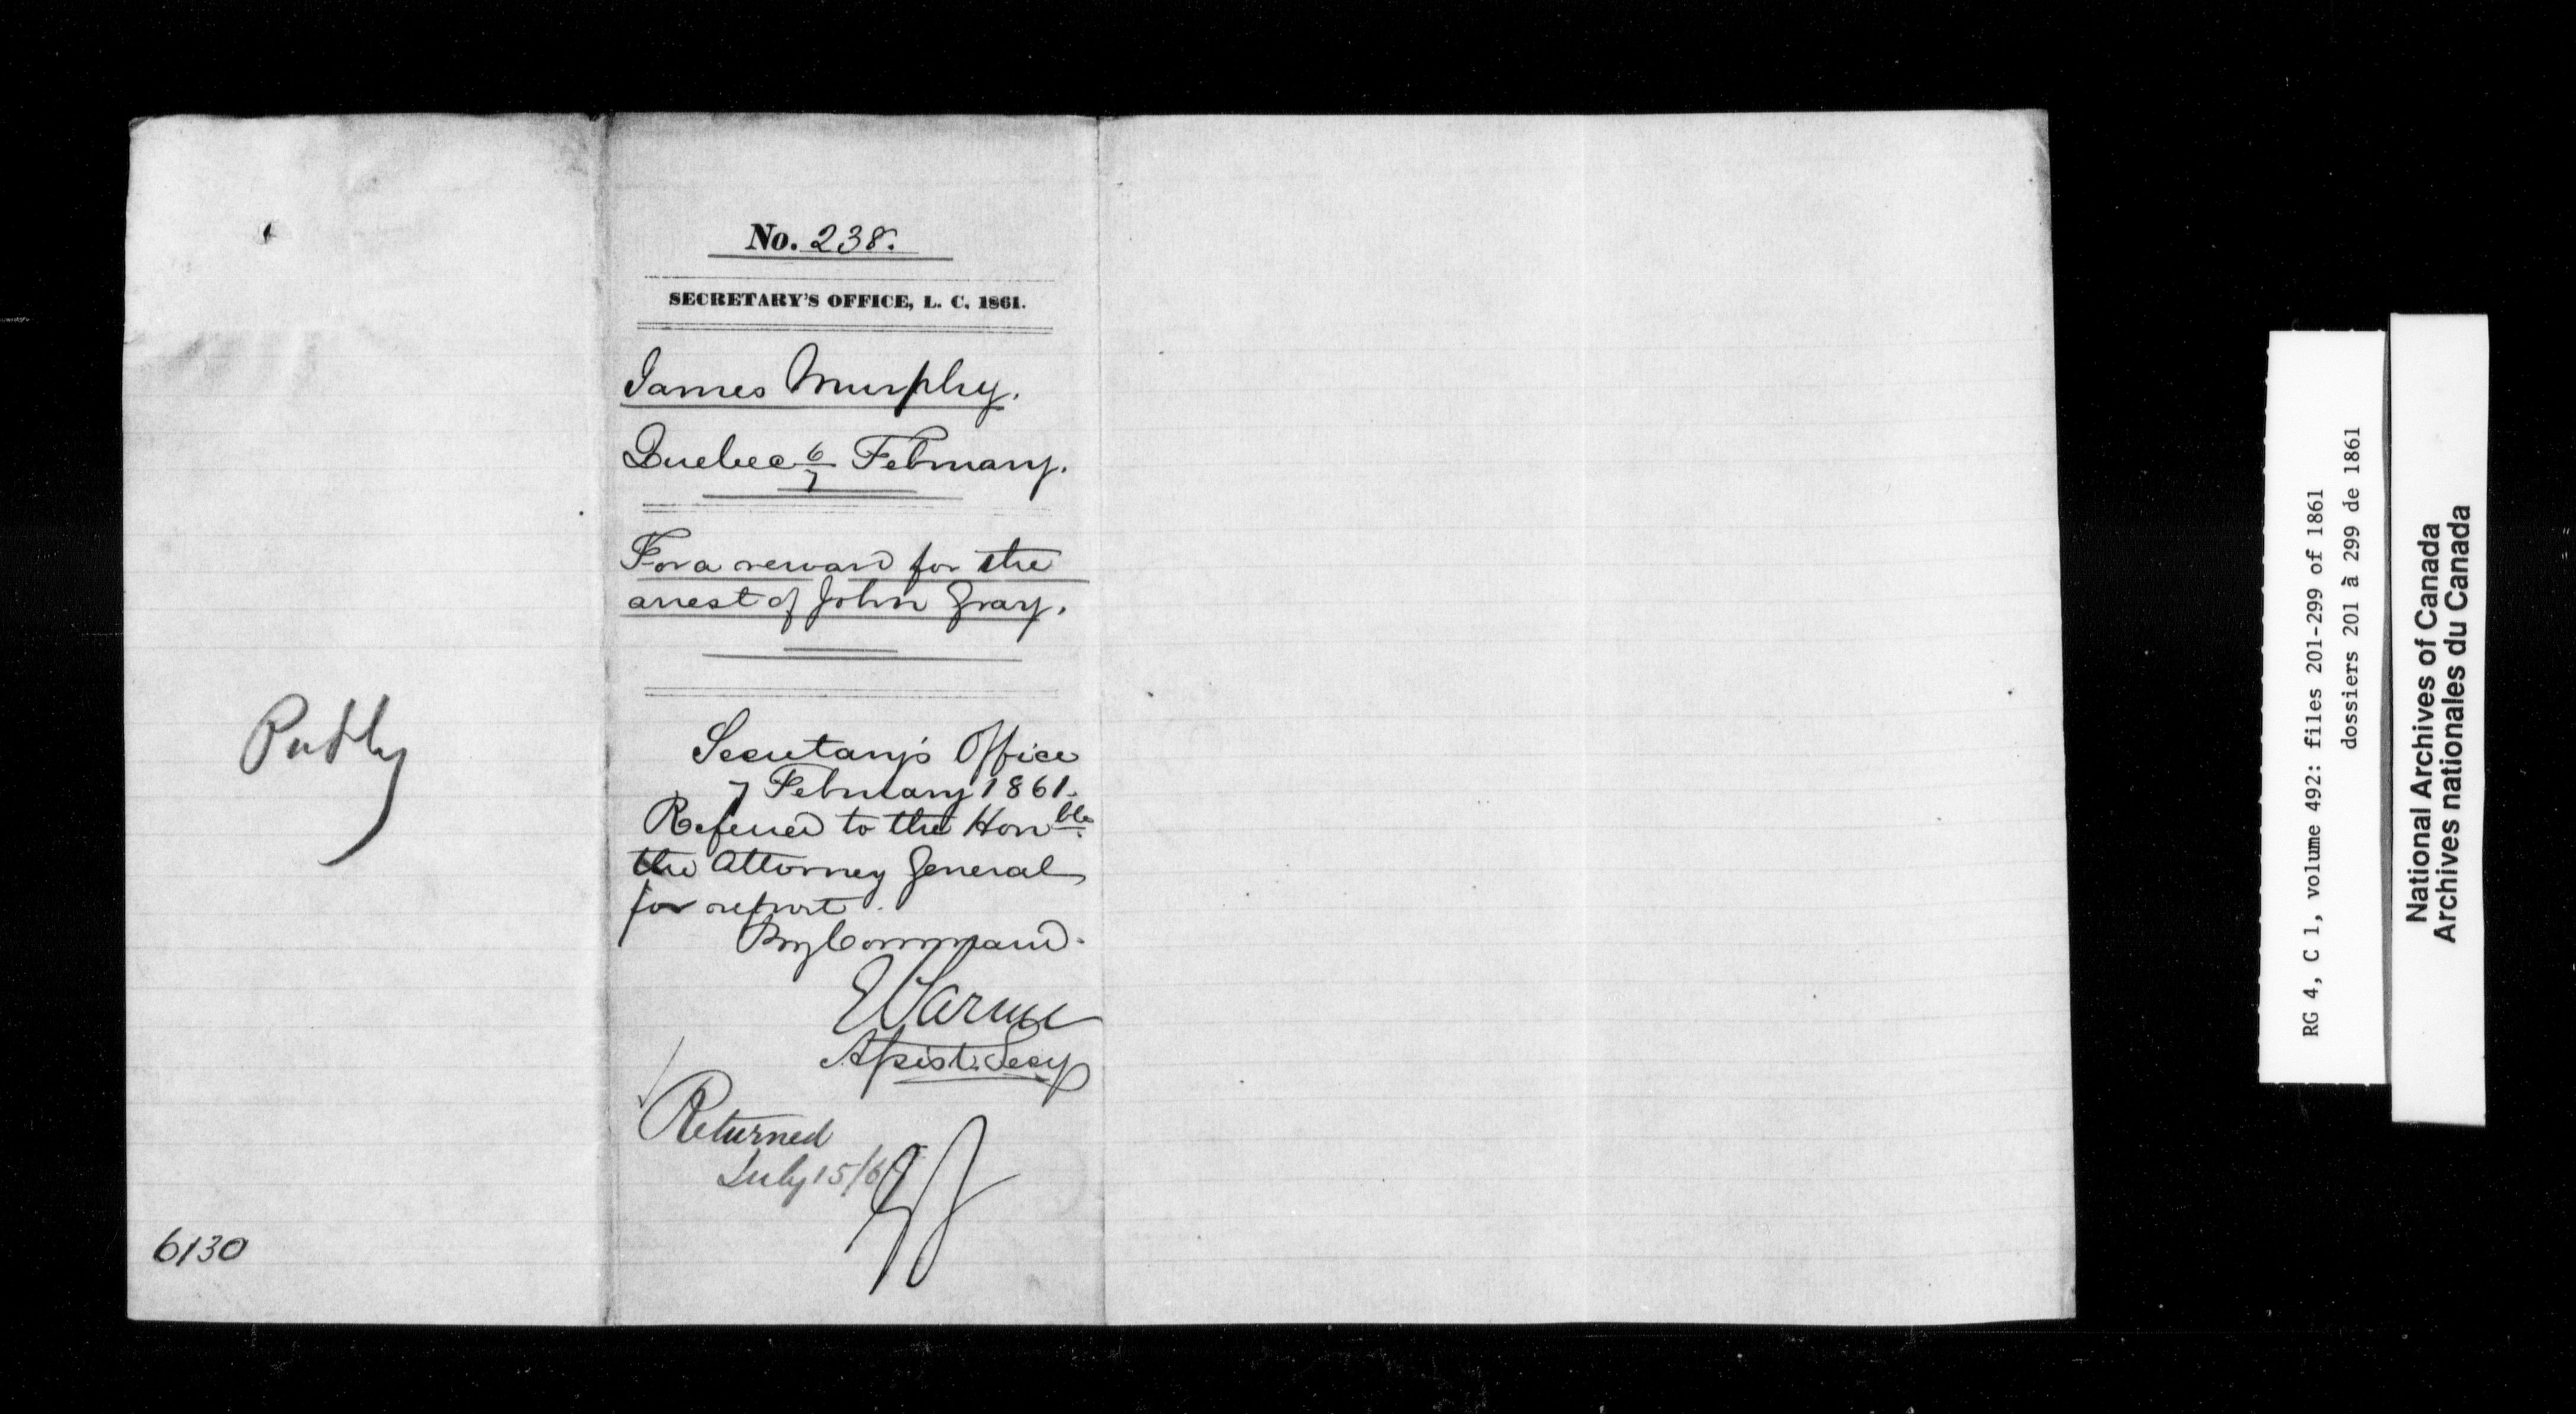 No. 238.
SECRETARY'S OFFICE, L. C. 1861.
James Murphy.
Quebec 6/7 February.
For a reward for the
arrest of John Gray.
Secretary's Office
7 February 1861.
Referred to the Honble
the Attorney General
for report.
By Command.
Assist. Secy
Returned
July 15/61
6130
RG 4, C 1, volume 492: files 201-299 of 1861
dossiers 201 à 299 de 1861
National Archives of Canada
Archives nationales du Canada